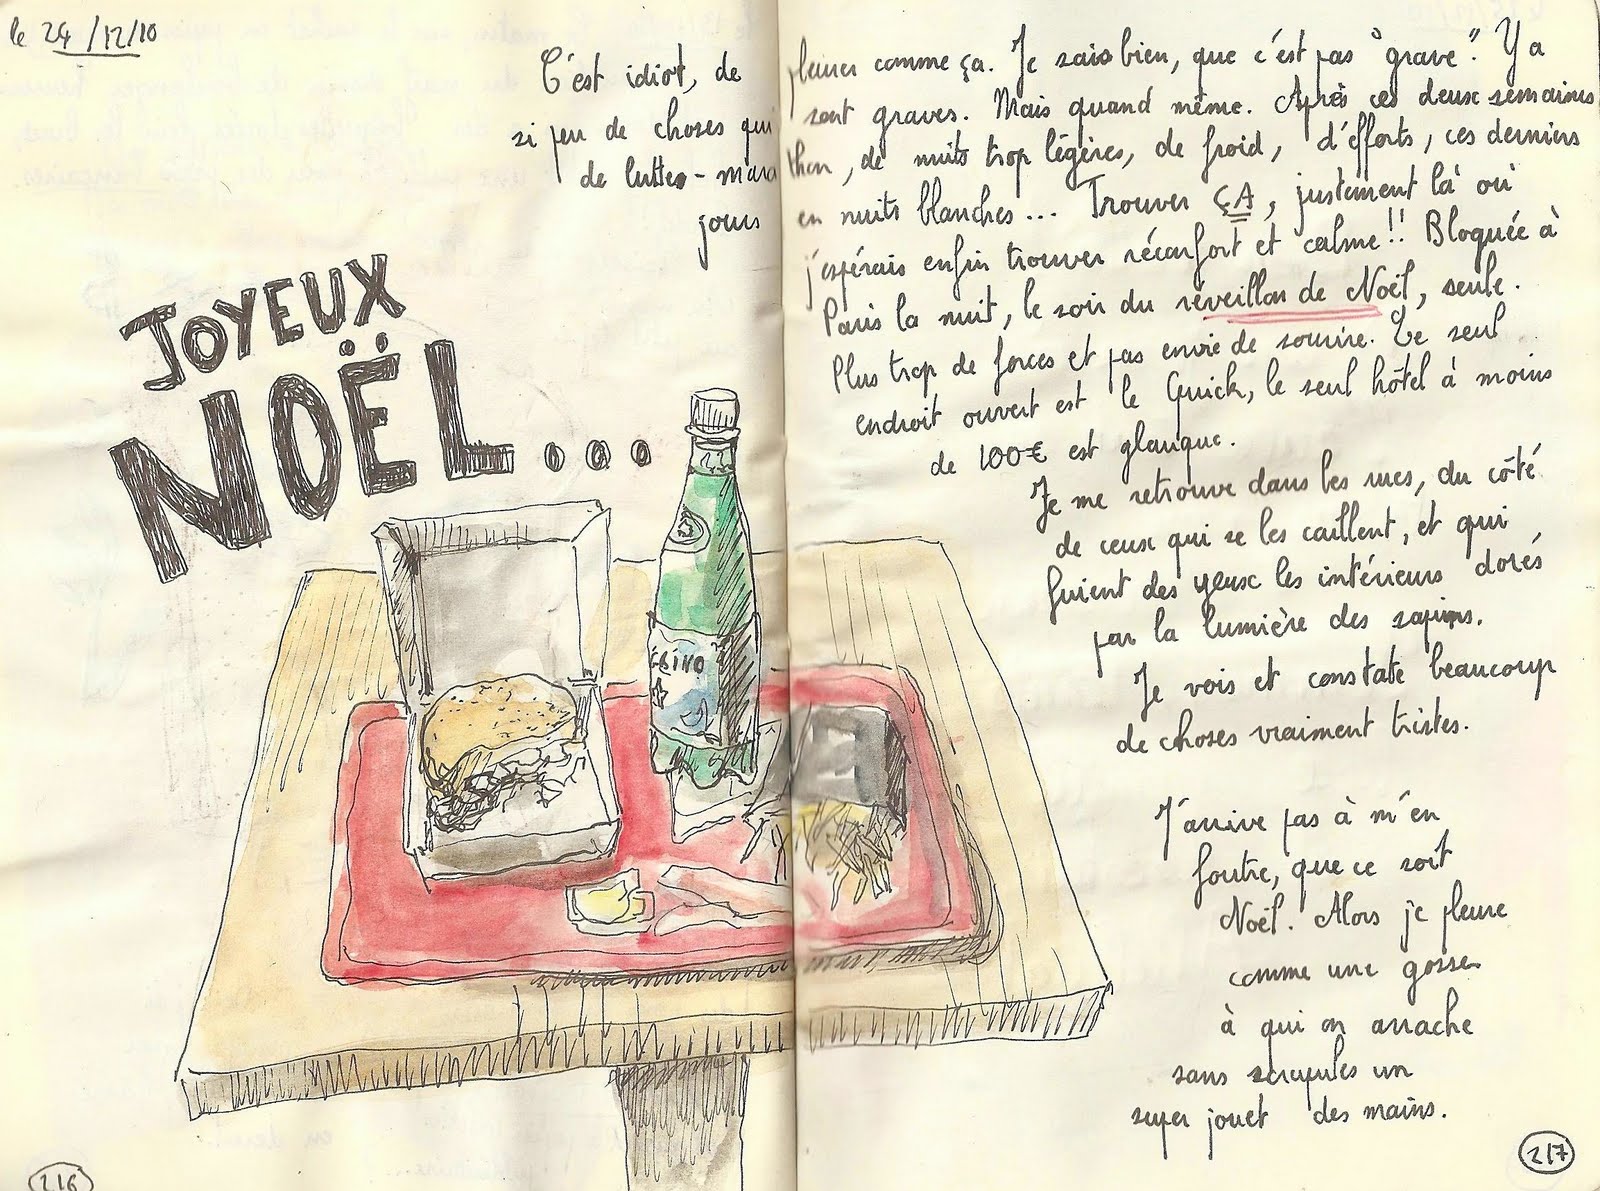 le 24/12/10
C'est idiot, de pleurer comme ça. Je sais bien, que c'est pas "grave". Y a
si peu de choses qui sont graves. Mais quand même. Après ces deux semaines
de luttes-marathon, de nuits trop légères, de froid, d'efforts, ces derniers
jours en nuits blanches... Trouver ÇA, justement là où
j'espérais enfin trouver réconfort et calme!! Bloquée à
Paris la nuit, le soir du réveillon de Noël, seule.
Plus trop de forces et pas envie de sourire. Le seul
endroit ouvert est le Quick, le seul hôtel à moins
de 100€ est glauque.
Je me retrouve dans les rues, du côté
de ceux qui se les caillent, et qui
fuient des yeux les intérieurs dorés
par la lumière des sapins.
Je vois et constate beaucoup
de choses vraiment tristes.
J'arrive pas à m'en
foutre, que ce soit
Noël. Alors je pleure
comme une gosse
à qui on arrache
sans scrupules un
super jouet des mains.
JOYEUX
NOËL...
216
217